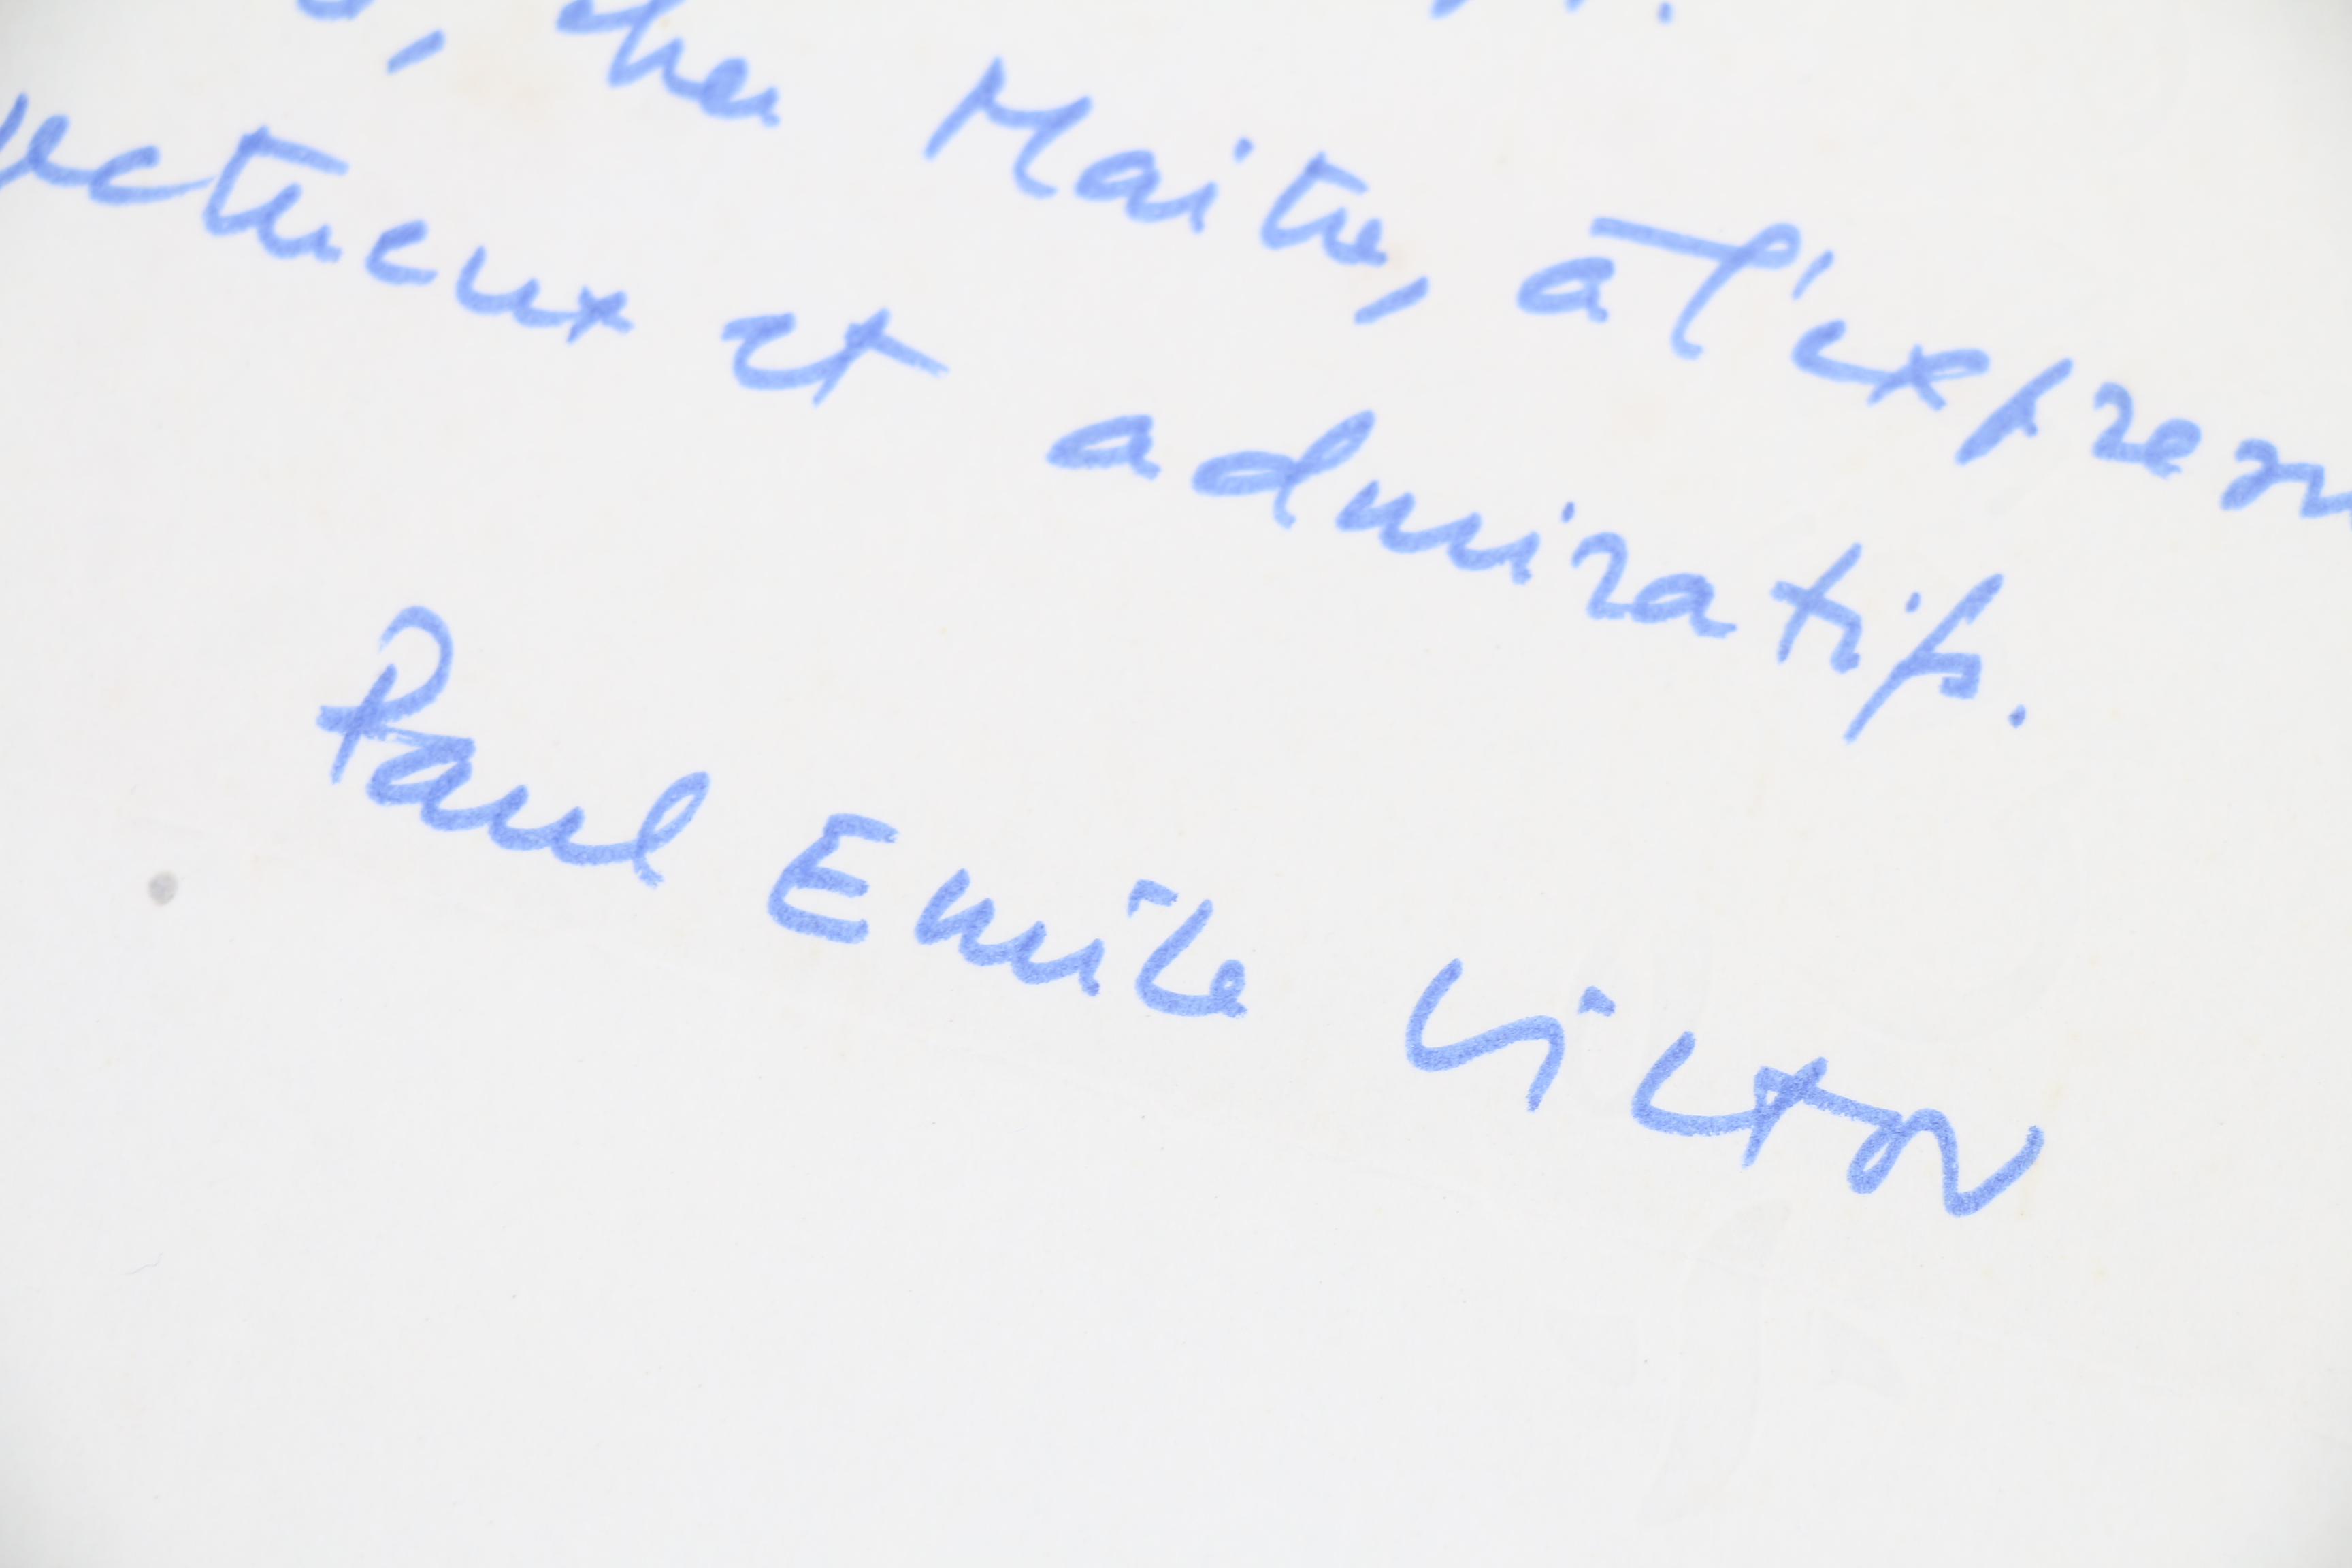 , cher Maitre, a l'expression
ectueux et admiratifs.
Paul Emile Victor